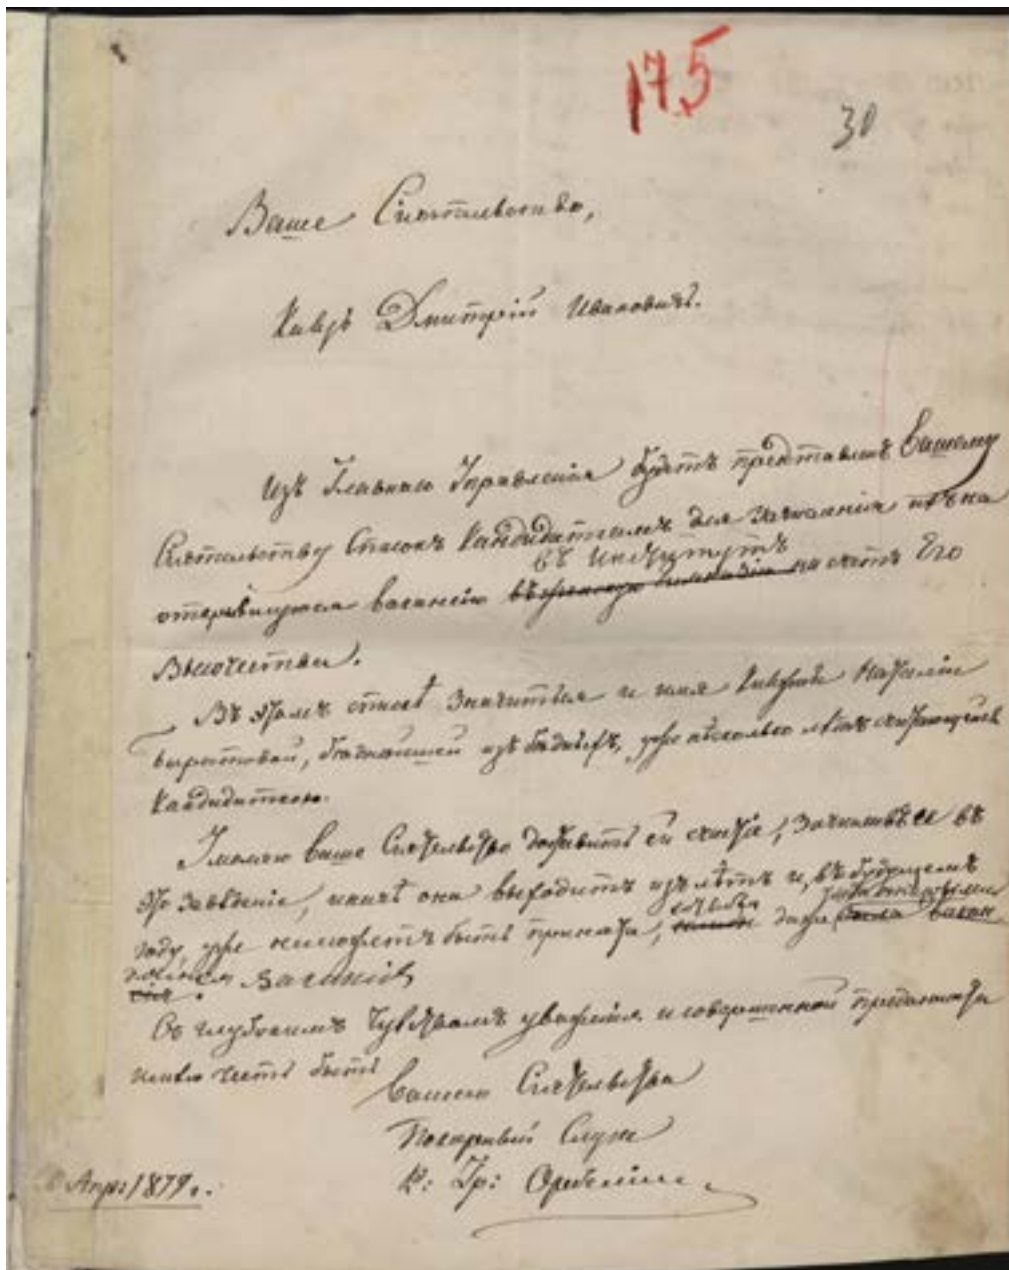 175
30
Ваше Сиятельство,
Князь Дмитрій Ивановичъ.
Изъ Главнаго Управленія будетъ представленъ Вашему
Сиятельству Списокъ Кандидаткамъ для зачисленія на
въ Институтъ
открывшуюся вакансію на счетъ Его
Высочества.
Въ этомъ списке значится и имя Княжны Наталіи
бѣднѣйшей изъ бѣдныхъ, уже нѣсколько лѣтъ считающейся
Кандидаткою.
Умоляю Ваше Сиятельство ей счастіе, зачисливъ ее въ
это заведеніе, иначе она выходитъ изъ лѣтъ и, въ будущемъ
году, уже неможетъ быть принята, даже
вакансія
Съ глубокимъ чувствомъ уваженія и совершенной преданности
имѣю честь быть
Вашего Сиятельства
Покорный Слуга
К: Гр: Орбеліани
Апрѣ 1879 г.